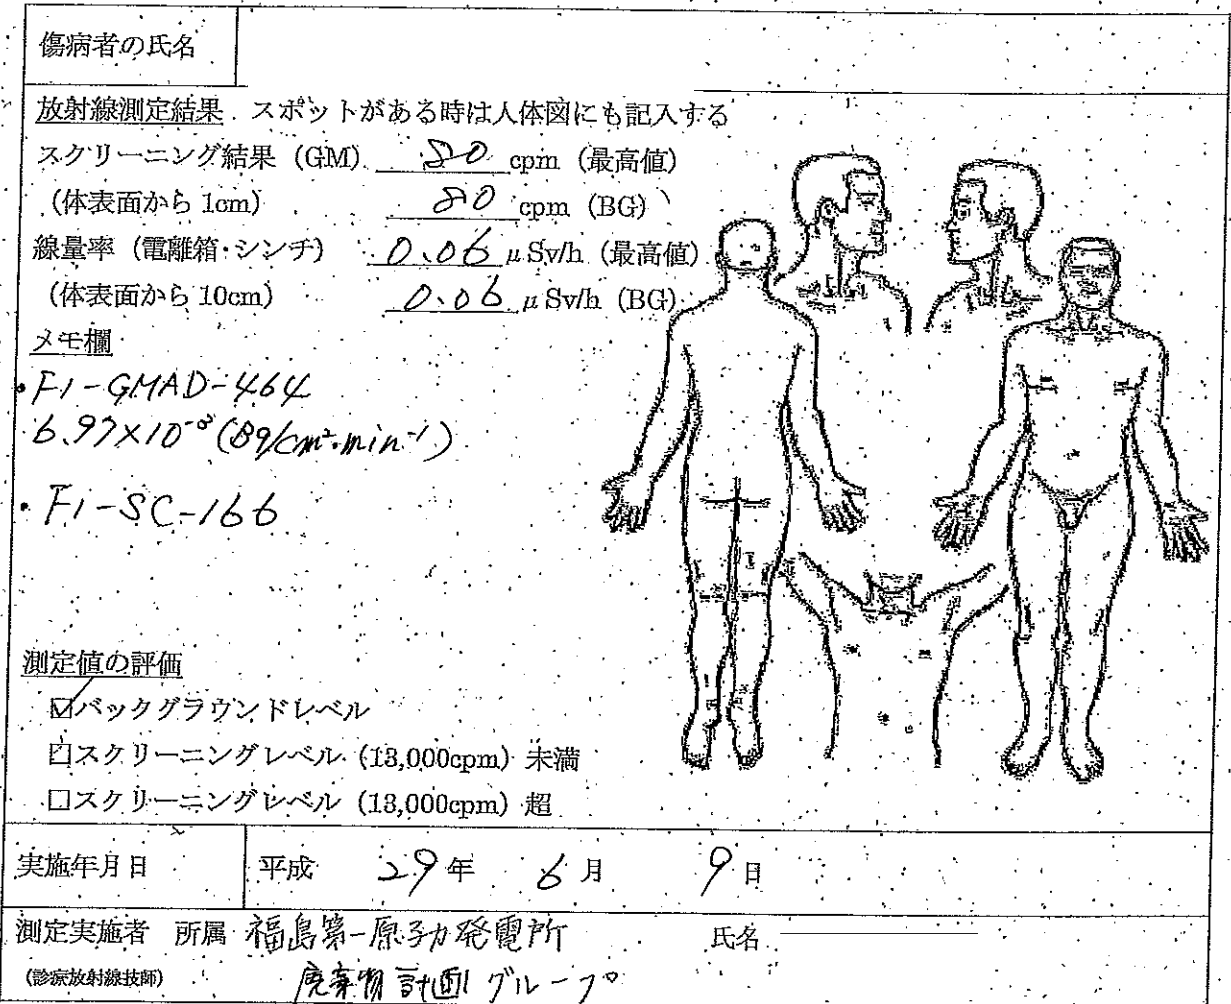 傷病者の氏名
放射線測定結果 スポットがある時は人体図にも記入する
スクリーニング結果 (GM) 80 cpm (最高値)
(体表面から 1cm) 80 cpm (BG)
線量率 (電離箱・シンチ) 0.06 μSv/h (最高値)
(体表面から 10cm) 0.06 μSv/h (BG)
メモ欄
・F1-GMAD-464
6.97×10⁻³ (Bq/cm²・min⁻¹)
・F1-SC-166
測定値の評価
☑バックグラウンドレベル
□スクリーニングレベル (13,000cpm) 未満
□スクリーニングレベル (13,000cpm) 超
実施年月日 平成 29年 6月 9日
測定実施者 所属 福島第一原子力発電所 氏名
(診療放射線技師) 廃棄物計画グループ